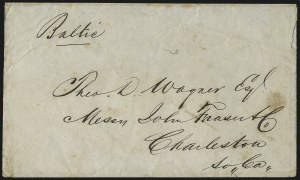 Baltic
Theo. D. Wagner Esq
Messrs John Fraser & Co
Charleston
So. Ca.